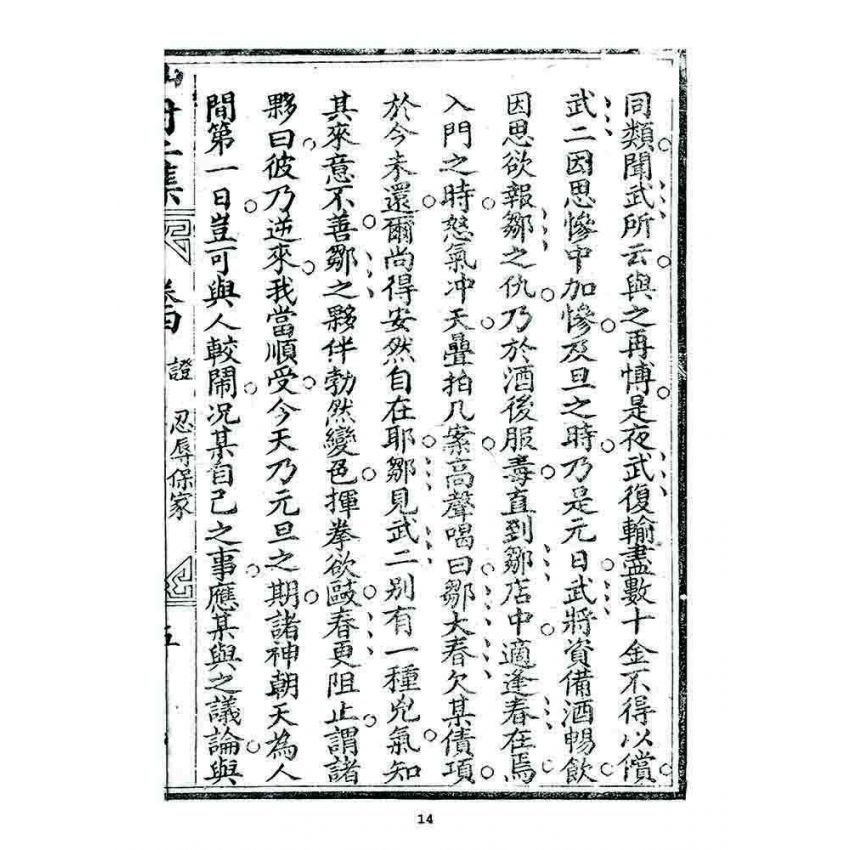 同類聞武所云與之再愽是夜武復輸盡數十金不得以償
武二因思慘中加慘及旦之時乃是元日武將資備酒暢飲
因思欲報鄒之仇乃於酒後服毒直到鄒店中適逢春在焉
入門之時怒氣冲天疊拍几案高聲喝曰鄒大春欠某債項
於今未還爾尚得安然自在耶鄒見武二别有一種兇氣知
其來意不善鄒之夥伴勃然變色揮拳欲敺春更阻止謂諸
夥曰彼乃逆來我當順受今天乃元旦之期諸神朝天為人
間第一日豈可與人較鬧况某自己之事應某與之議論與
集
證 忍辱保家
五
14